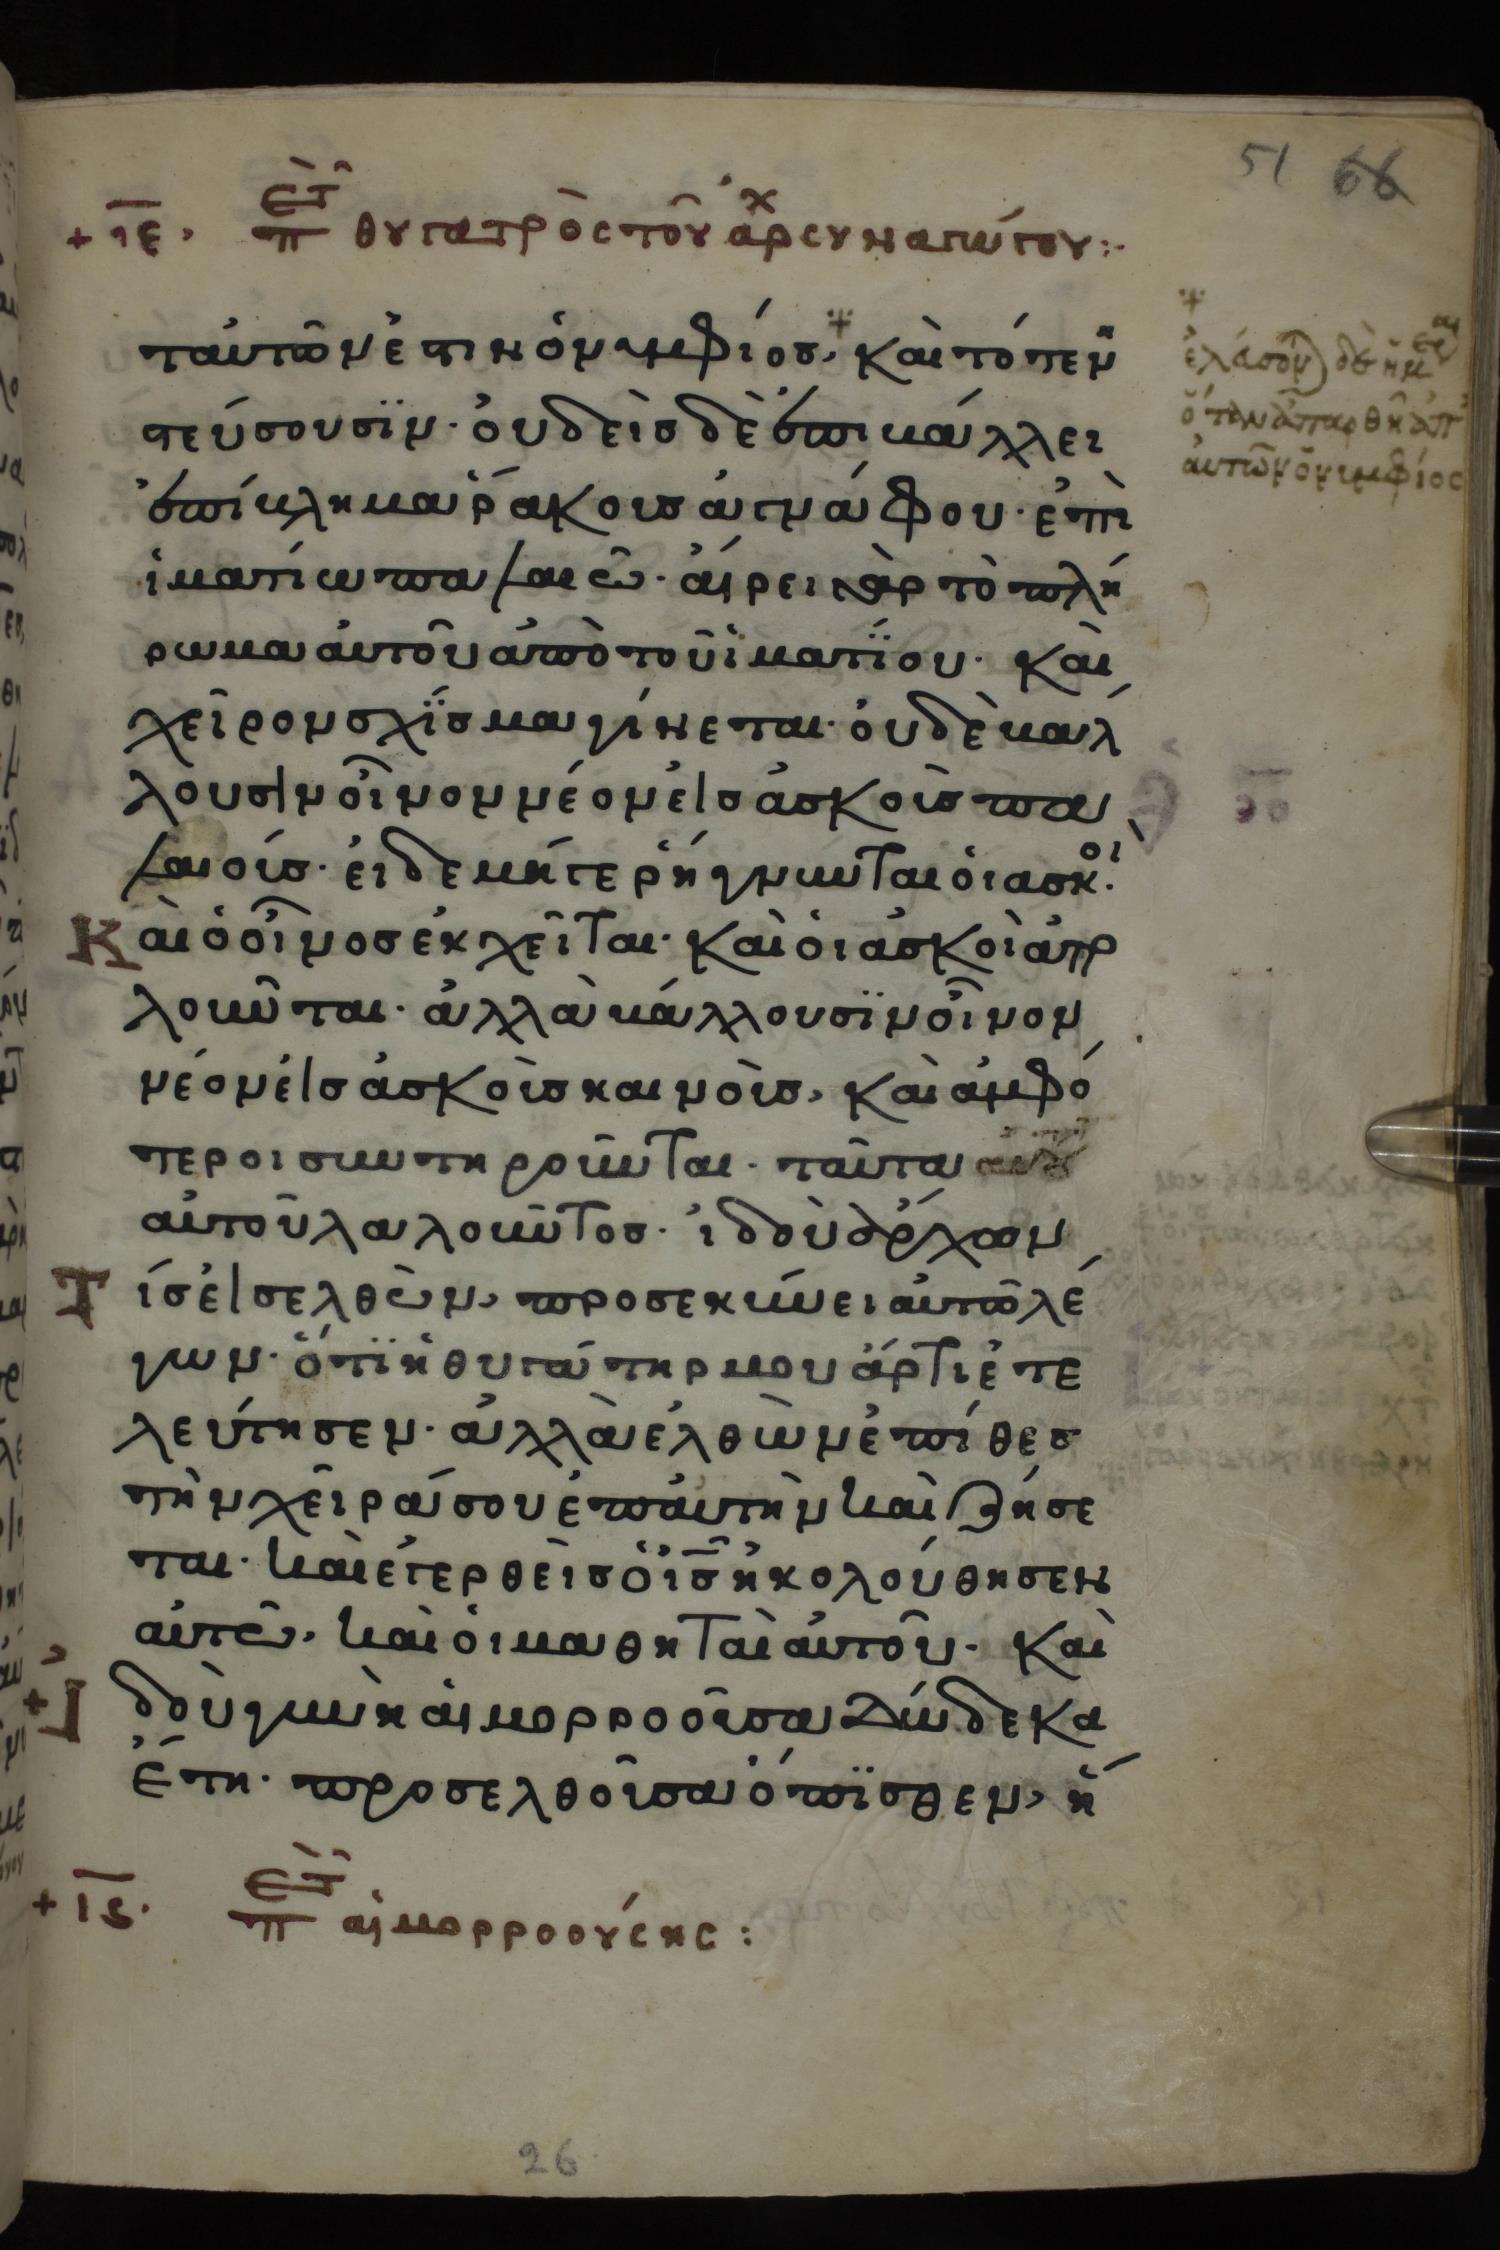 51 66
+ ιε, περὶ τῆς θυγατρὸς τοῦ ἀρχισυναγώγου:-
τ᾽αὐτῶν ἐστιν ὁ νυμφίος, καὶ τότε νη
στεύσουσϊν· οὐδεὶς δὲ ἐπιβάλλει
ἐπίβλημα ῥάκους ἀγνάφου· ἐπὶ
ἱματίω παλαιῶ· αἴρει γὰρ τὸ πλή
ρωμα αὐτοῦ ἀπὸ τοῦ ἱματΐου· καὶ
χεῖρον σχΐσμα γίνεται· οὐδὲ βάλ
λουσιν οἶνον νέον εἰς ἀσκοὺς πα
λαιούς· εἰ δὲ μήγε ῥήγνυνται οἱ ἀσκοί·
Καὶ ὁ οἶνος ἐκχεῖται· καὶ οἱ ἀσκοὶ ἀπο
λοῦνται· ἀλλὰ βάλλουσϊν οἶνον
νέον εἰς ἀσκοὺς καινοὺς, καὶ ἀμφό
τεροι συντηροῦνται· ταῦτα
αὐτοῦ λαλοῦντος· ἰδοὺ ἄρχων
Τίς εἰσελθὼν, προσεκύνει αὐτῶ λέ
γων· ὅτϊ ἡ θυγάτηρ μου ἄρτι ἐτε
λεύτησεν· ἀλλὰ ἐλθὼν ἐπίθες
τὴν χεῖρά σου ἐπ᾽αὐτὴν καὶ ζήσε
ται· καὶ ἐγερθεὶς ὁ ις ἠκολούθησεν
αὐτῶ, καὶ οἱ μαθηταὶ αὐτοῦ· καὶ
+ Ἰδοὺ γυνὴ αἱμορροοῦσα δώδεκα
ἔτη· προσελθοῦσα ὄπϊσθεν, ἥ
+ ις· περὶ τῆς αἱμορροούσης:
ἐλεύσονται δὲ ἡμέραι
ὅταν ἀπαρθῆ ἀπ᾽
αὐτῶν ὁ νυμφίος
26